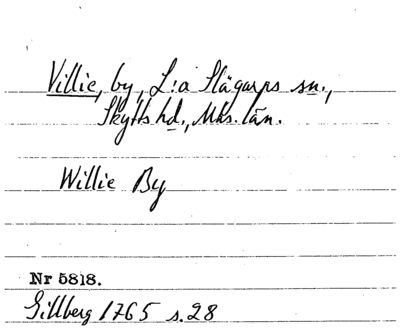 Villie, by, L:a Slågarps sn.,
Skytts hd., Mlm. län.
Willie By
Nr 5818.
Gillberg 1765 s. 28